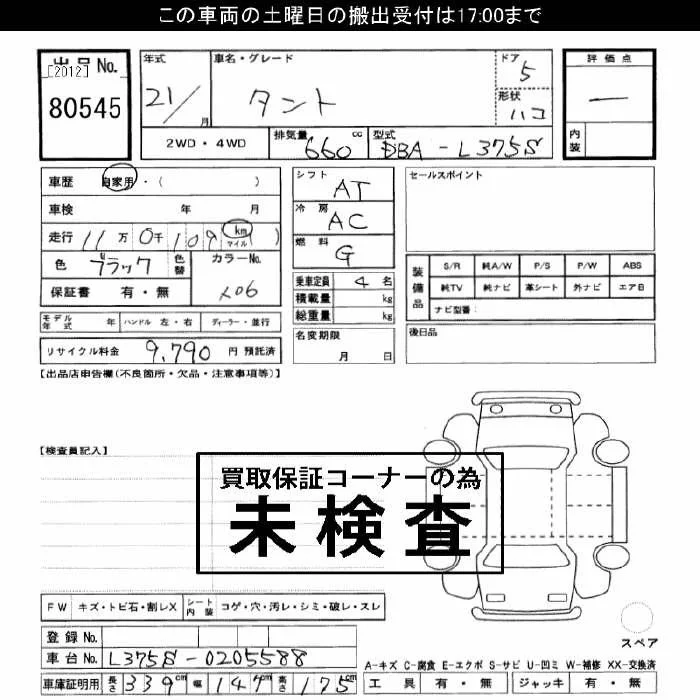 この車両の土曜日の搬出受付は17:00まで
出品No. [2012] 80545
年式 21/ 月
車名・グレード タント
ドア 5
形状 ハコ
評価点 —
内装
2WD・4WD
排気量 660 cc
型式 DBA-L375S
車歴 自家用・( )
車検 年 月
走行 11万 0千 109 (km マイル)
色 ブラック 色替
カラーNo. X06
保証書 有・無
モデル年式 年 ハンドル 左・右 ディーラー・並行
リサイクル料金 9,790 円 預託済
シフト AT
冷房 AC
燃料 G
乗車定員 4 名
積載量 kg
総重量 kg
名変期限 月 日
セールスポイント
装備品 S/R 純A/W P/S P/W ABS
純TV 純ナビ 革シート 外ナビ エアB
ナビ型番:
後日品
【出品店申告欄(不良箇所・欠品・注意事項等)】
【検査員記入】
買取保証コーナーの為
未検査
FW キズ・トビ石・割レX シート内装 コゲ・穴・汚レ・シミ・破レ・スレ
登録No.
車台No. L375S-0205588
車庫証明用 長さ 339cm 幅 147cm 高さ 175cm
スペア
A-キズ C-腐食 E-エクボ S-サビ U-凹ミ W-補修 XX-交換済
工具 有・無 ジャッキ 有・無